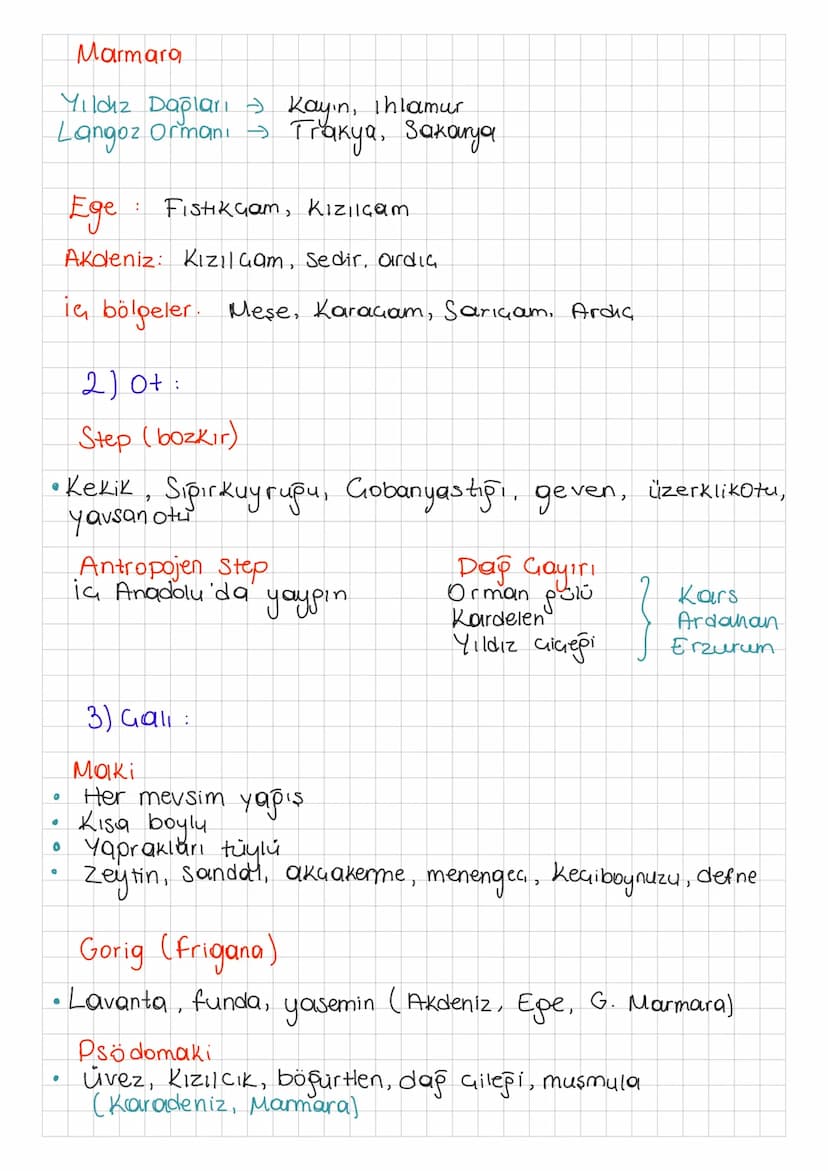 Marmara
Yıldız Dağları → Kayın, ıhlamur
Langoz Ormanı → Trakya, Sakarya
Ege : Fıstıkçam, Kızılçam
Akdeniz: Kızılçam, Sedir, ardıç
iç bölgeler. Meşe, Karaçam, Sarıçam, Ardıç
2) Ot :
Step (bozkır)
• Kekik, Sığırkuyruğu, Çobanyastığı, geven, üzerklikotu,
yavsan otu
Antropojen Step
iç Anadolu'da yaygın
Dağ Çayırı
Orman gülü
Kardelen
Yıldız çiçeği
Kars
Ardahan
Erzurum
3) Çalı :
Maki
• Her mevsim yağış
• Kısa boylu
• Yaprakları tüylü
• Zeytin, Sandal, akçakerme, menengeç, keçiboynuzu, defne
Gorig (Frigana)
• Lavanta, funda, yasemin (Akdeniz, Ege, G. Marmara)
Psödomaki
• Üvez, Kızılcık, böğürtlen, dağ çileği, muşmula
(Karadeniz, Marmara)